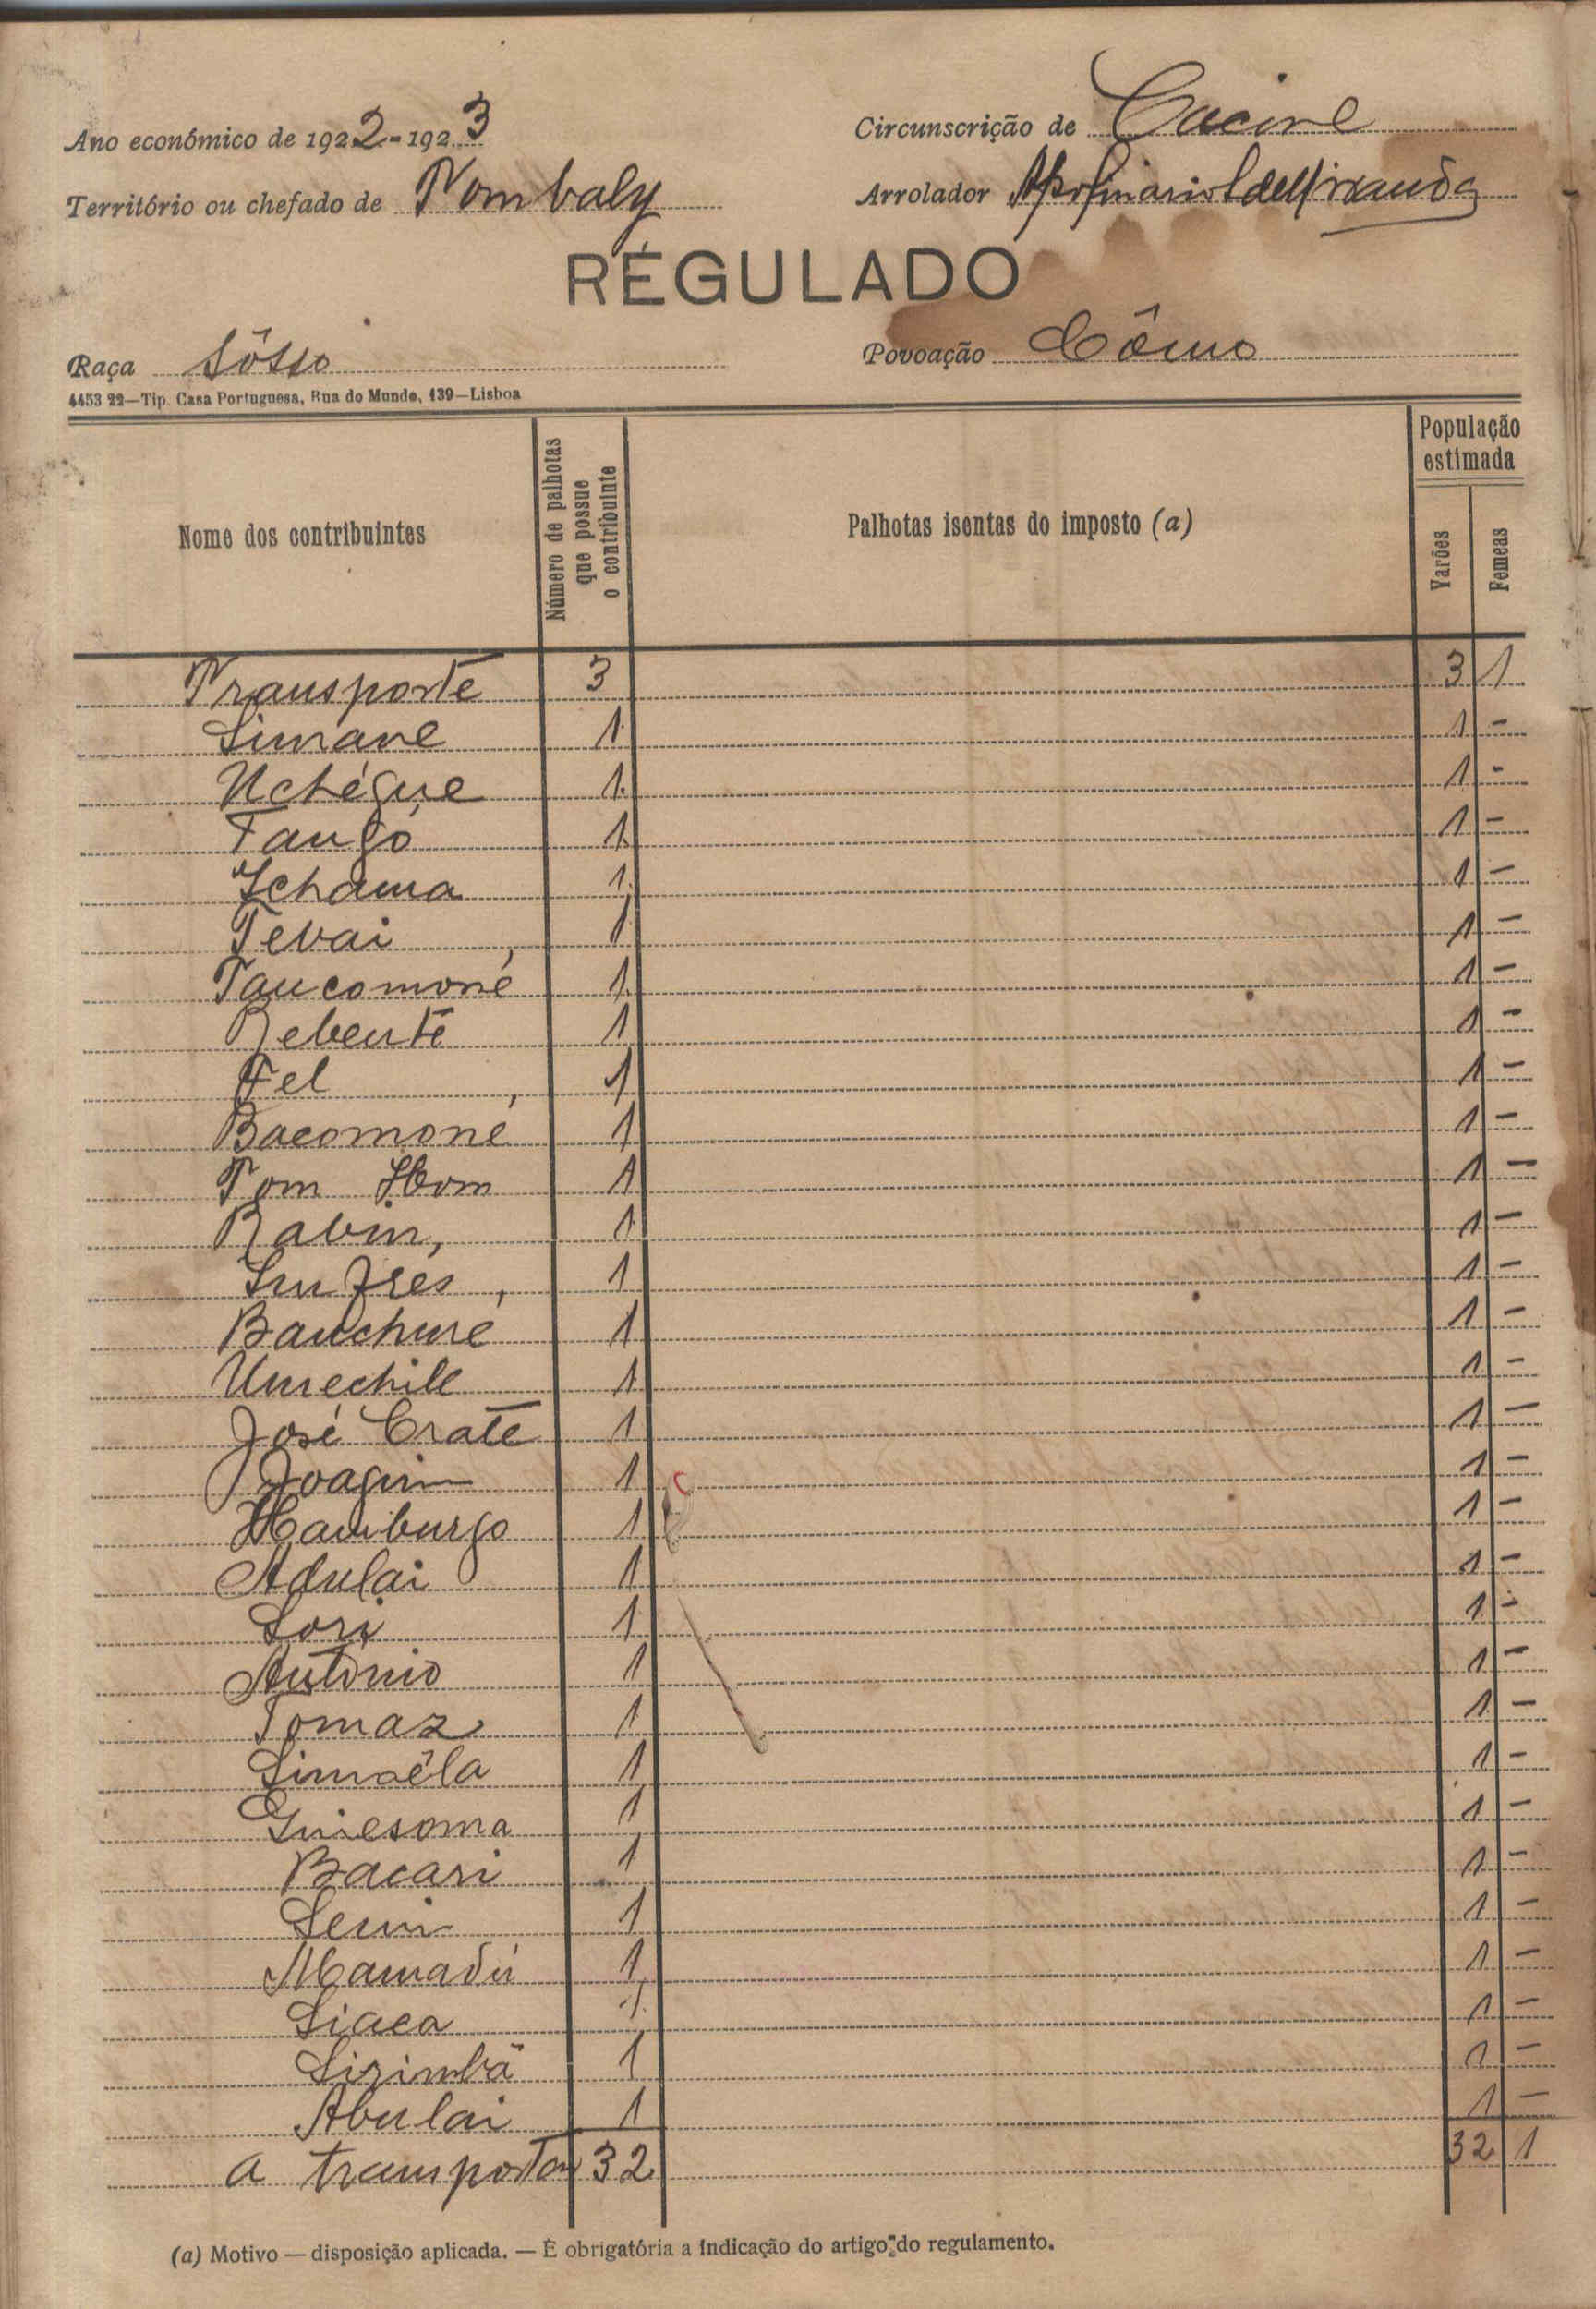 Ano económico de 1922-1923
Circunscrição de Cacine
Território ou chefado de Tombaly
Arrolador Apolinario
RÉGULADO
Raça Sôsso
Povoação Cômo
4453 22—Tip. Casa Portuguesa, Rua do Mundo, 139—Lisboa
Nome dos contribuintes
Número de palhotas que possue o contribuinte
Palhotas isentas do imposto (a)
População estimada
Varões
Femeas
Transporte 3 3 1
Simane 1 1 -
Uchégue 1 1 -
Tangó 1 1 -
Ichama 1 1 -
Tebai 1 1 -
Taucomoné 1 1 -
Rebenté 1 1 -
Fel 1 1 -
Bacomoné 1 1 -
Tom Hom 1 1 -
Rabin, 1 1 -
1 1 -
Bauchuré 1 1 -
Umechile 1 1 -
José Crate 1 1 -
Joaquim 1 1 -
Hamburgo 1 1 -
Adulai 1 1 -
Sori 1 1 -
António 1 1 -
Tomaz 1 1 -
Simoêla 1 1 -
Guiesoma 1 1 -
Bacari 1 1 -
1 1 -
Mamadú 1 1 -
Siaca 1 1 -
Sirimbã 1 1 -
Abulai 1 1 -
a transportar 32 32 1
(a) Motivo — disposição aplicada. — É obrigatória a indicação do artigo do regulamento.